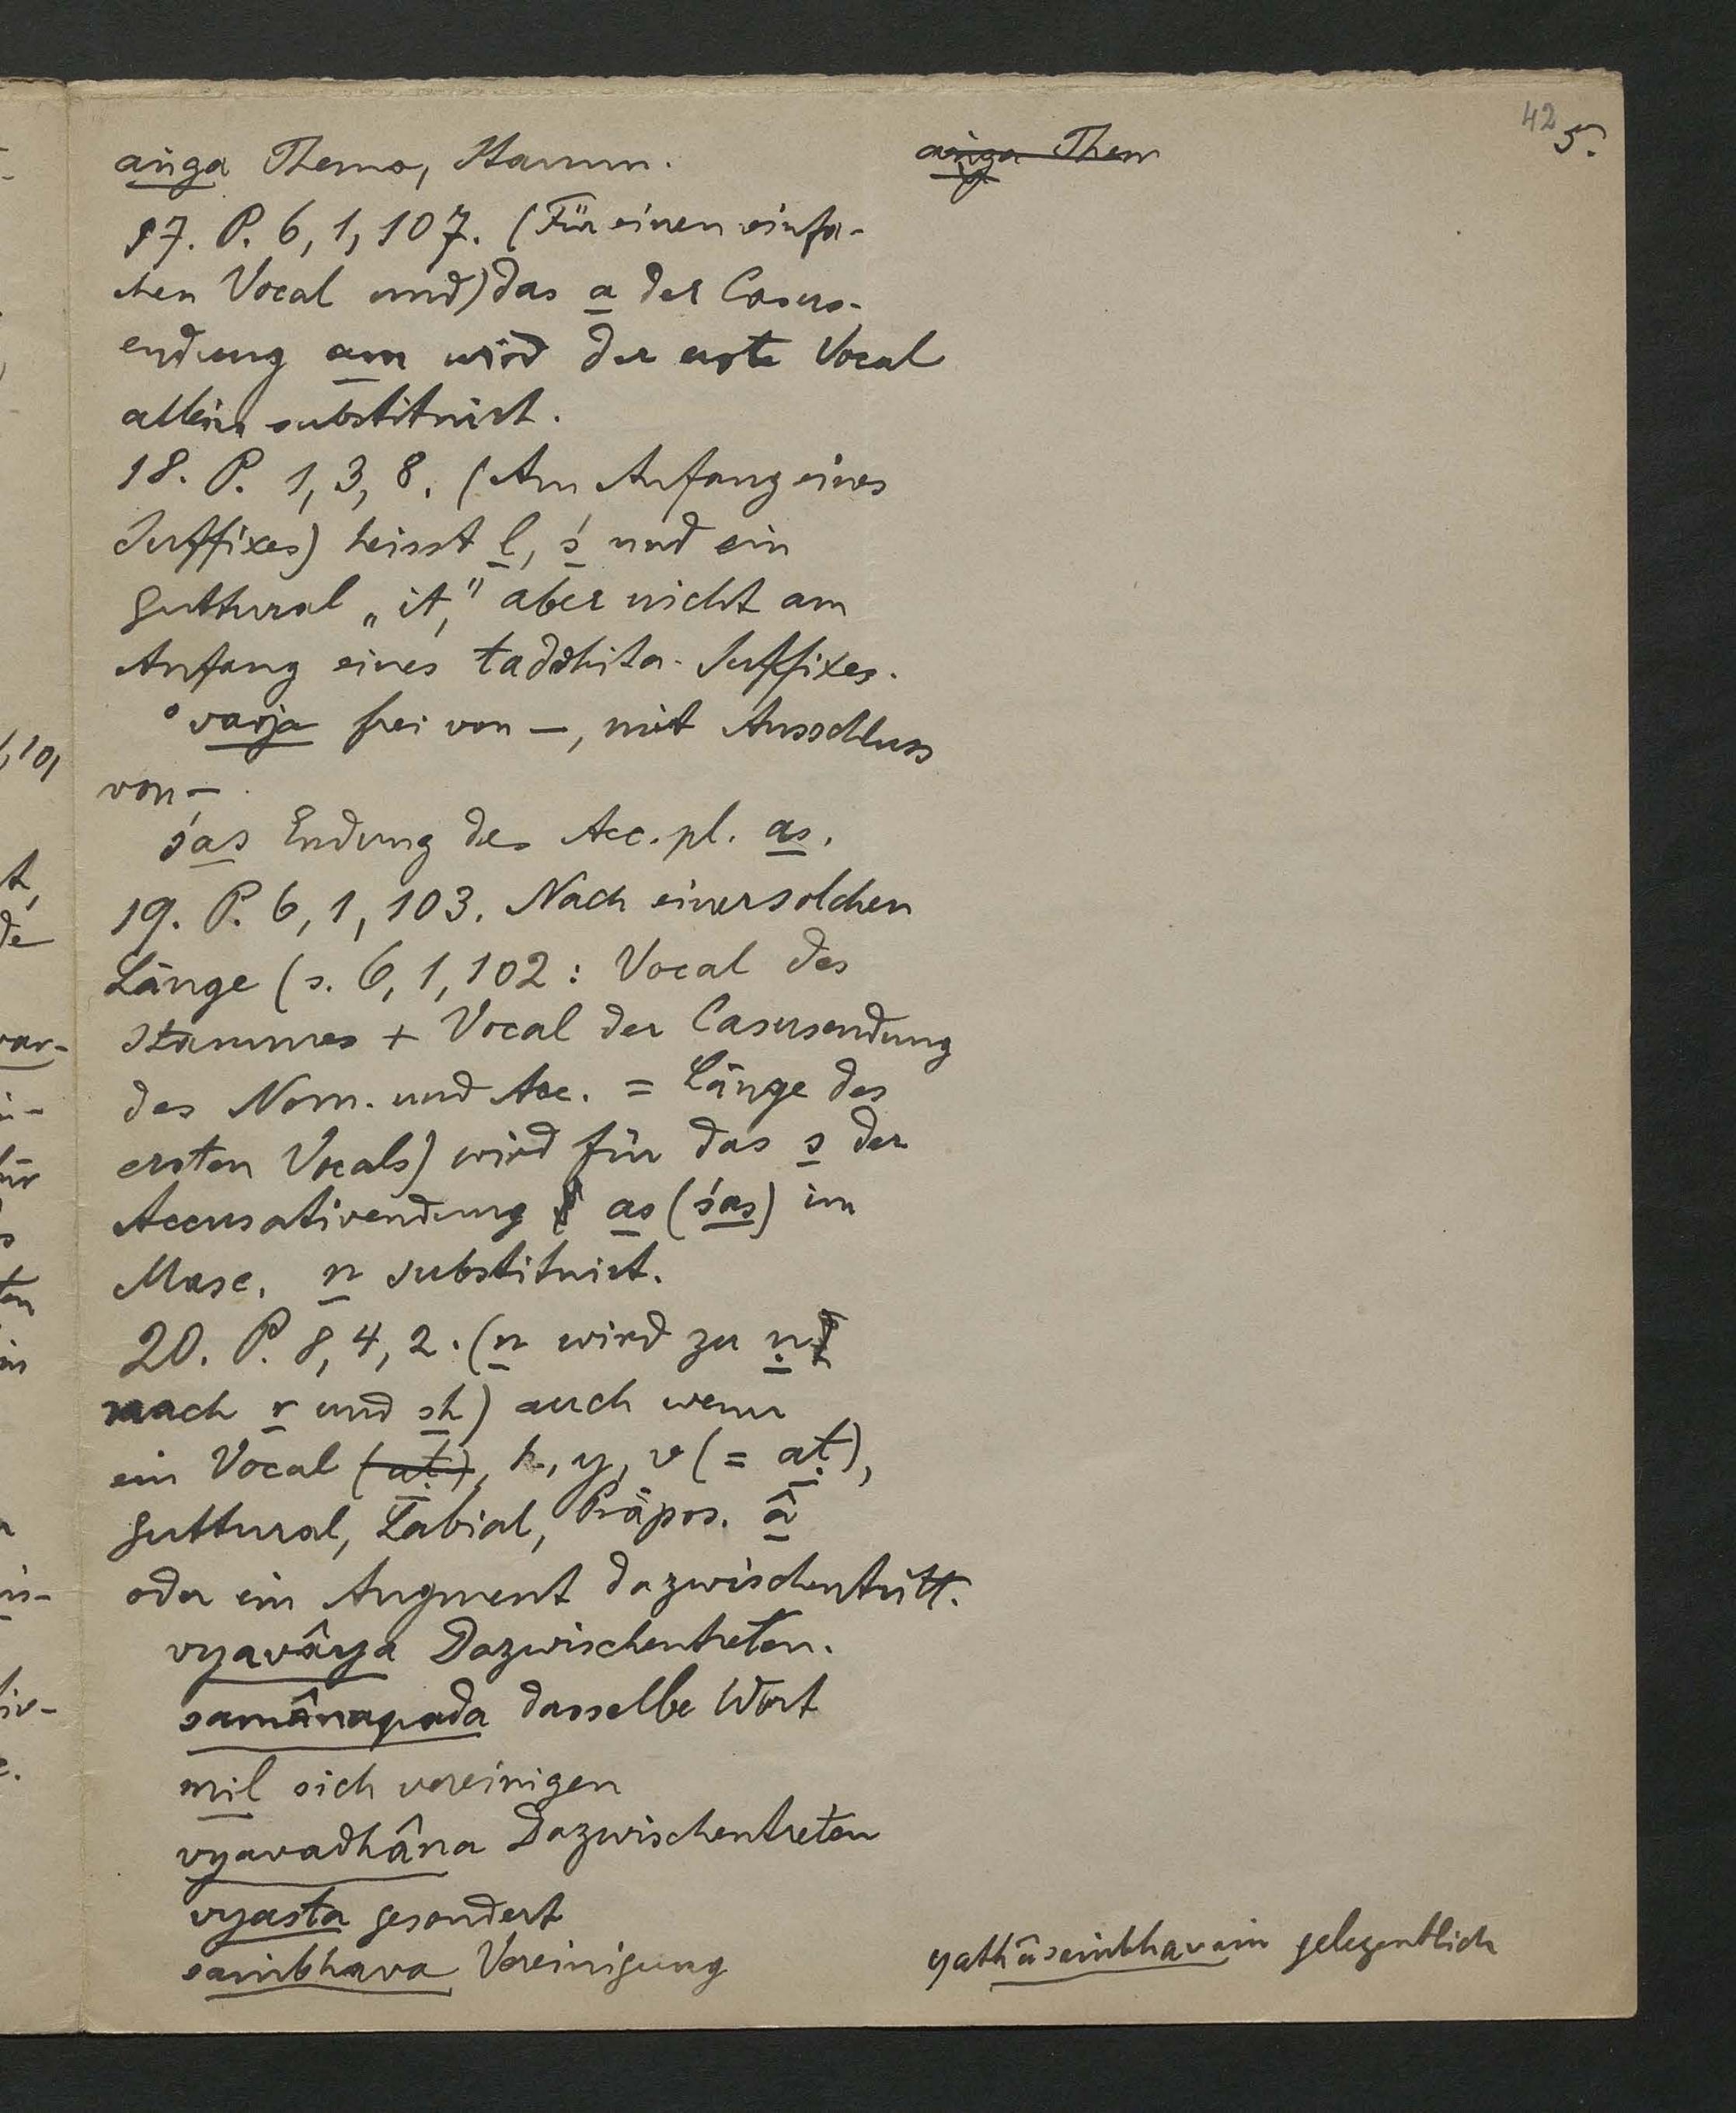 42
5.
aṅga Thema, Stamm.
aṅga Them
17. P. 6, 1, 107. (Für einen einfa-
chen Vocal und) das a der Casus-
endung am wird der erste Vocal
allein substituirt.
18. P. 1, 3, 8. (Am Anfang eines
Suffixes) heisst l, ś und ein
Guttural „it," aber nicht am
Anfang eines taddhita-Suffixes.
°varja frei von —, mit Ausschluss
von —.
śas Endung des Acc. pl. as.
19. P. 6, 1, 103. Nach einer solchen
Länge (s. 6, 1, 102: Vocal des
Stammes + Vocal der Casusendung
des Nom. und Acc. = Länge des
ersten Vocals) wird für das s der
Accusativendung as (śas) im
Masc. n substituirt.
20. P. 8, 4, 2. (n wird zu ṇ
nach r und sh) auch wenn
ein Vocal (aṭ), h, y, v (= aṭ),
Guttural, Labial, Präpos. â
oder ein Augment dazwischentritt.
vyavâya Dazwischentreten.
samânapada dasselbe Wort
mil sich vereinigen
vyavadhâna Dazwischentreten
vyasta gesondert
saṁbhava Vereinigung
yathâsaṁbhavam gelegentlich